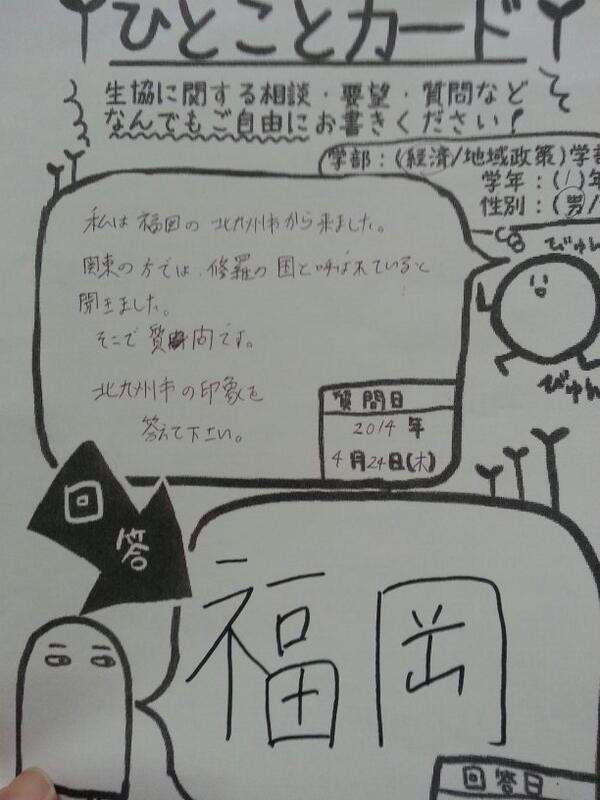 ひとことカード
生協に関する相談・要望・質問など
なんでもご自由にお書きください!
学部:(経済/地域政策)学部
学年:(1)年
性別:(男/
私は福岡の北九州市から来ました。
関東の方では、修羅の国と呼ばれていると
聞きました。
そこで質問です。
北九州市の印象を
答えて下さい。
びゅん
びゅん
質問日
2014年
4月24日(木)
回答
福岡
回答日